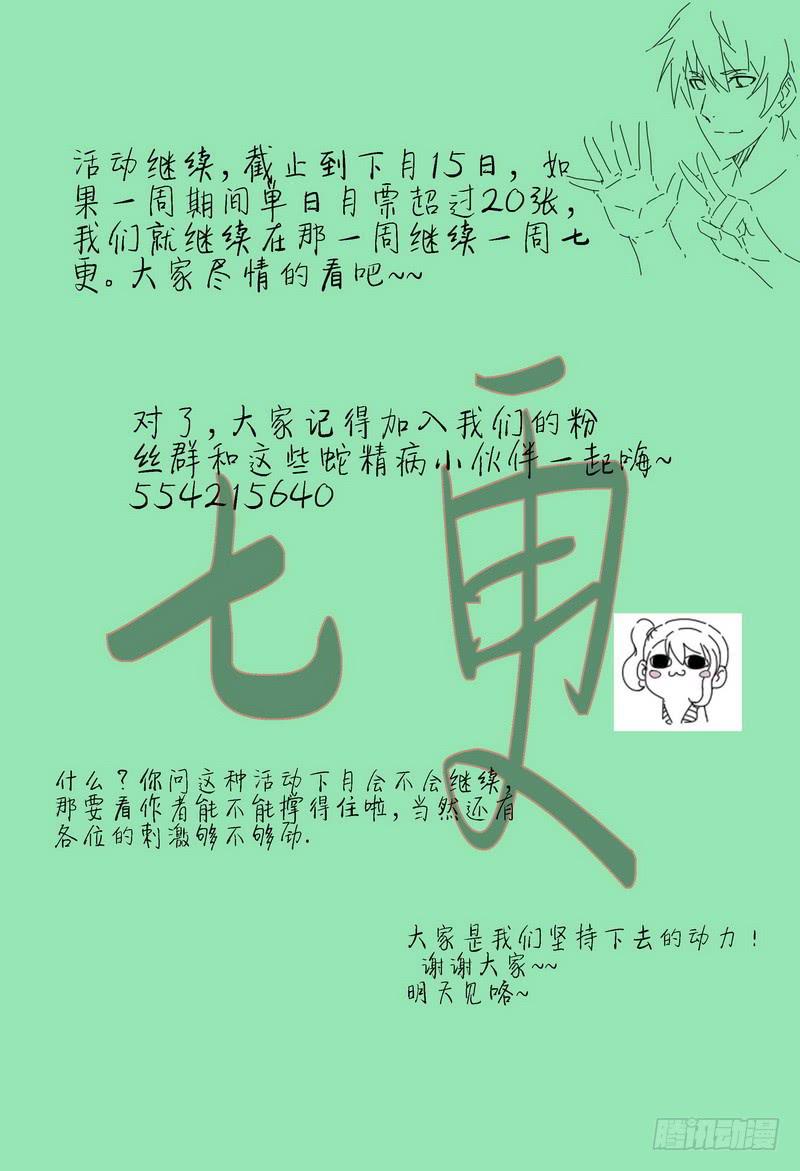 活动继续，截止到下月15日，如
果一周期间单日月票超过20张，
我们就继续在那一周继续一周七
更。大家尽情的看吧~~
对了，大家记得加入我们的粉
丝群和这些蛇精病小伙伴一起嗨~
554215640
七更
什么？你问这种活动下月会不会继续，
那要看作者能不能撑得住啦，当然还有
各位的刺激够不够劲.
大家是我们坚持下去的动力！
谢谢大家~~
明天见咯~
腾讯动漫